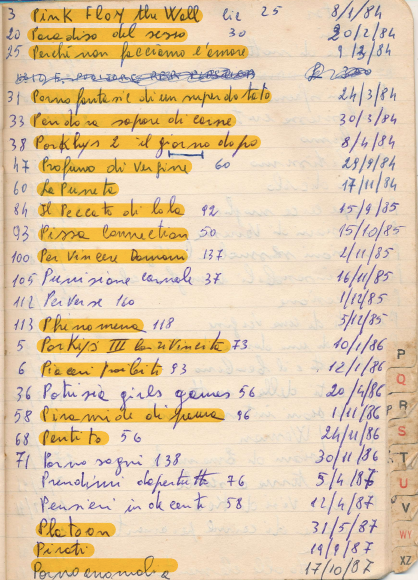 3 Pink Floy the Wall 25 8/1/84
20 Paradiso del sesso 30 20/2/84
25 Perché non facciamo l'amore 9/3/84
31 Porno fantasie di un superdotato 24/3/84
33 Pandora sapore di carne 30/3/84
38 Porkhys 2 il giorno dopo 8/4/84
47 Profumo di vergine 60 29/9/84
60 La 17/11/84
84 Il Peccato di Lola 92 15/9/85
93 Pizza Connection 50 15/10/85
100 Per Vincere Domani 137 2/11/85
105 carnale 37 16/11/85
112 Perverse 160 1/12/85
113 Phenomena 118 5/12/85
5 Porkys III 73 10/1/86
6 Piaceri proibiti 93 12/1/86
36 Patrisia girls games 56 20/4/86
58 Piramide di paura 96 1/11/86
68 Pentito 56 24/11/86
71 Porno sogni 138 30/11/86
Prendimi dapertutto 76 5/4/87
Pensieri indecenti 58 12/4/87
Platoon 31/5/87
Pirati 19/9/87
17/10/87
P
Q
R
S
T
U
V
WY
XZ